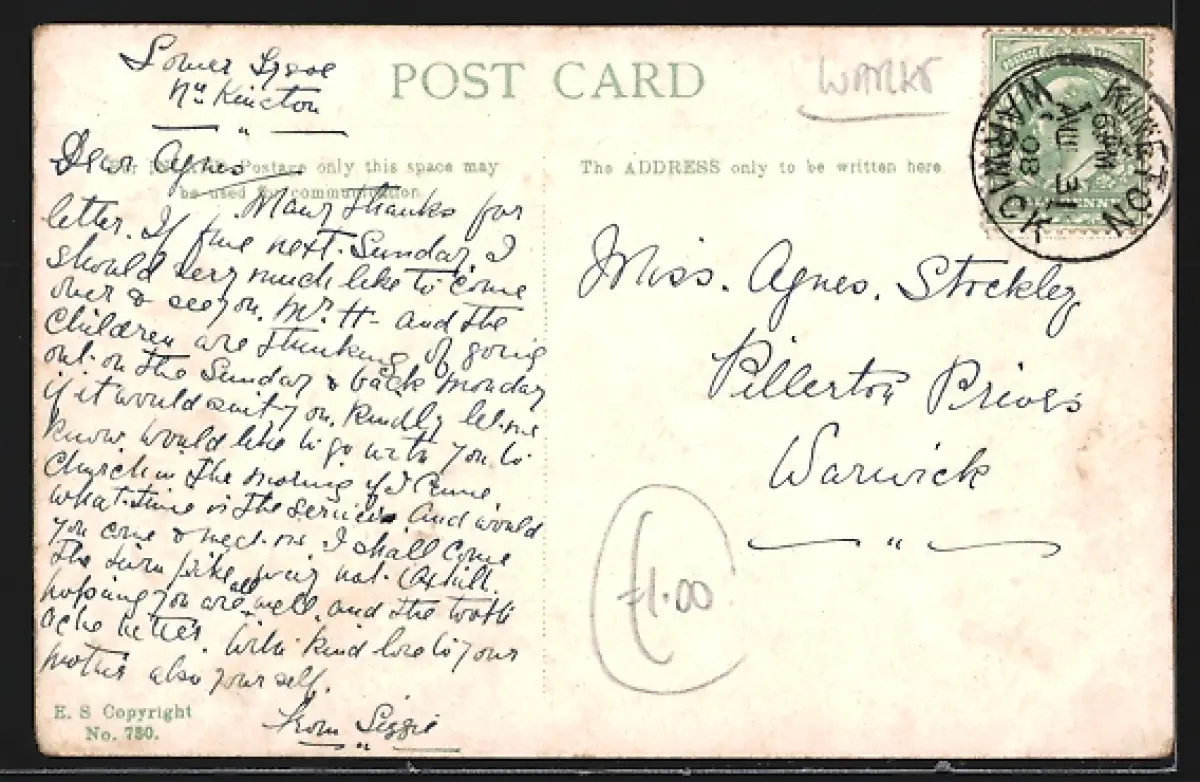 Lower
Nr Kineton
POST CARD
WARKS
Dear Agnes
For Inland Postage only this space may
be used for communication
The ADDRESS only to be written here
KINETON
6 PM
JU 31
08
WARWICK
Many thanks for
letter. If fine next Sunday I
should very much like to come
over & see you. Mr. H- and the
children are thinking of going
out on the Sunday & back Monday
if it would suit you. Kindly let me
know would like to go with you to
Church in the morning if I came.
what time is the service. And would
you come & meet me. I shall come
the turn pike, not
hopeing you are all well, and the tooth
ache better. With kind love to your
mother also yourself.
from Lizzie
Miss. Agnes. Stockley
Pillerton Priors
Warwick
£1.00
E. S Copyright
No. 730.